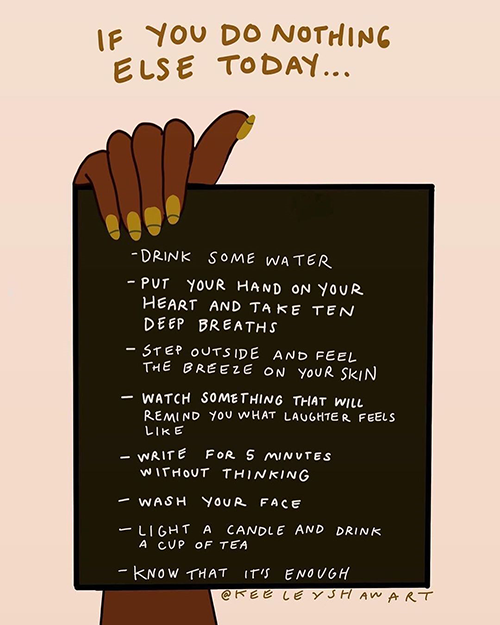 IF YOU DO NOTHING
ELSE TODAY...
-DRINK SOME WATER
- PUT YOUR HAND ON YOUR
HEART AND TAKE TEN
DEEP BREATHS
- STEP OUTSIDE AND FEEL
THE BREEZE ON YOUR SKIN
- WATCH SOMETHING THAT WILL
REMIND YOU WHAT LAUGHTER FEELS
LIKE
- WRITE FOR 5 MINUTES
WITHOUT THINKING
- WASH YOUR FACE
- LIGHT A CANDLE AND DRINK
A CUP OF TEA
- KNOW THAT IT'S ENOUGH
@KEELEYSHAWART